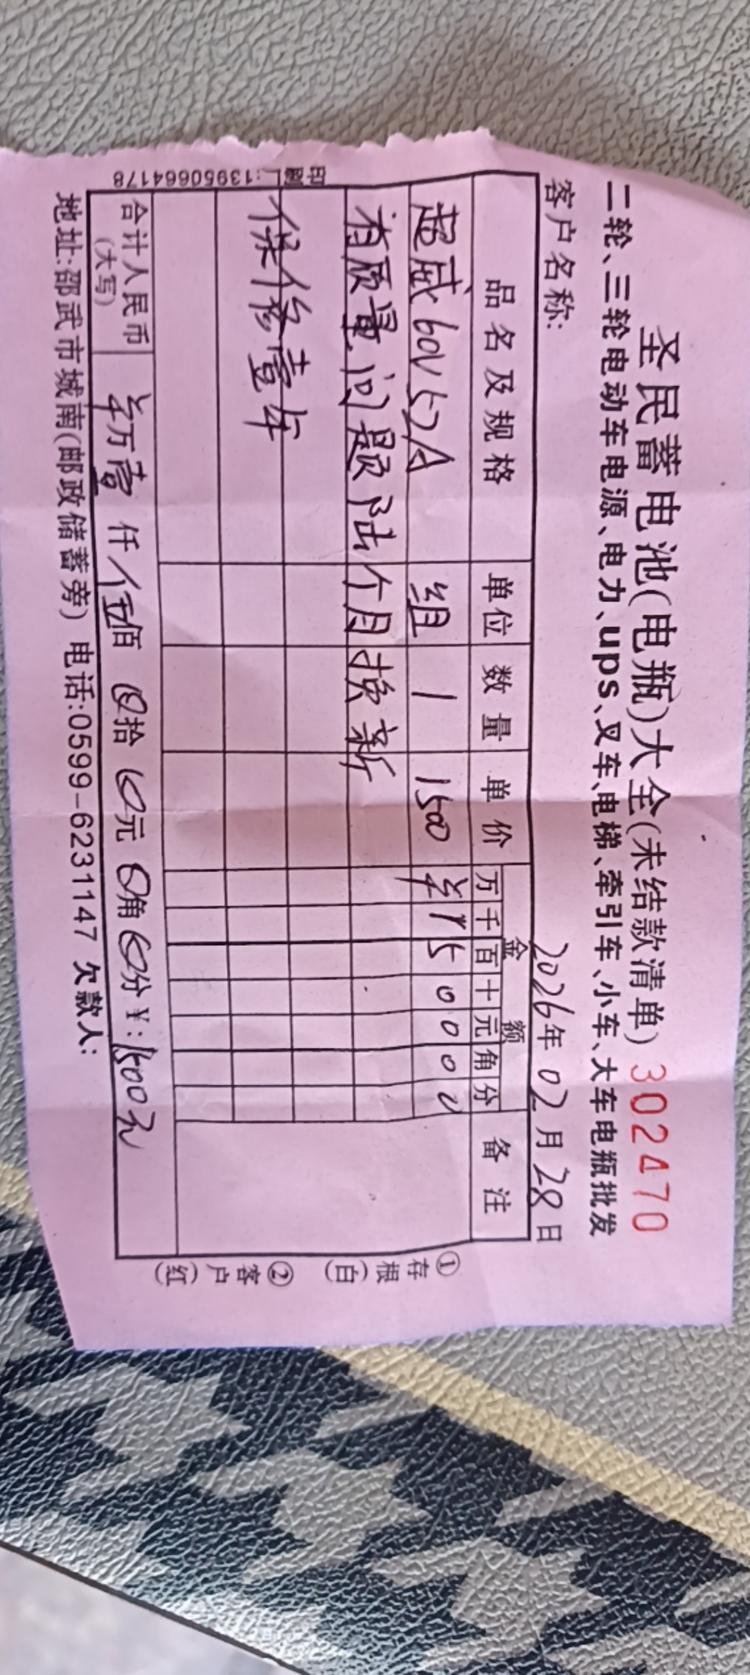 圣民蓄电池(电瓶)大全(未结款清单) 302470
二轮、三轮电动车电源、电力、ups、叉车、电梯、牵引车、小车、大车电瓶批发
客户名称: 2026年02月28日
品名及规格 单位 数量 单价 金额 备注
万 千 百 十 元 角 分
超威60V52A 组 1 1500 ¥ 1 5 0 0 0 0
有质量问题陆个月换新
保修壹年
合计人民币(大写) ¥万壹仟伍佰0拾0元0角0分 ¥:1500元
地址:邵武市城南(邮政储蓄旁) 电话:0599-6231147 欠款人:
①存根(白) ②客户(红)
印刷厂:13950664178